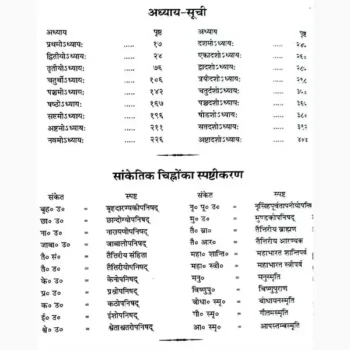 अध्याय-सूची
अध्याय पृष्ठ अध्याय पृष्ठ
प्रथमोऽध्यायः ..... १७ दशमोऽध्यायः .....
द्वितीयोऽध्यायः ..... २४ एकादशोऽध्यायः .....
तृतीयोऽध्यायः ..... ७६ द्वादशोऽध्यायः .....
चतुर्थोऽध्यायः ..... १०६ त्रयोदशोऽध्यायः .....
पञ्चमोऽध्यायः ..... १४२ चतुर्दशोऽध्यायः .....
षष्ठोऽध्यायः ..... १६७ पञ्चदशोऽध्यायः .....
सप्तमोऽध्यायः ..... १९६ षोडशोऽध्यायः .....
अष्टमोऽध्यायः ..... २११ सप्तदशोऽध्यायः .....
नवमोऽध्यायः ..... २२६ अष्टादशोऽध्यायः .....
सांकेतिक चिह्नोंका स्पष्टीकरण
संकेत स्पष्ट संकेत स्पष्ट
बृह० उ० = बृहदारण्यकोपनिषद् नृ० पू० उ० =
छा० उ० = छान्दोग्योपनिषद् मु० उ० = मुण्डकोपनिषद्
ना० उ० = नारायणोपनिषद् तै० ब्रा० = तैत्तिरीय ब्राह्मण
जाबा० उ० = जाबालोपनिषद् तै० आर० = तैत्तिरीय आरण्यक
तै० सं० = तैत्तिरीय संहिता महा० शान्ति० = महाभारत शान्तिपर्व
तै० उ० = तैत्तिरीयोपनिषद् महा० स्त्री० = महाभारत स्त्रीपर्व
के० उ० = केनोपनिषद् मनु० = मनुस्मृति
प्र० उ० = प्रश्नोपनिषद् विष्णुपु० = विष्णुपुराण
क० उ० = कठोपनिषद् बोधा० स्मृ० = बोधायनस्मृति
ई० उ० = ईशोपनिषद् गौ० स्मृ० = गौतमस्मृति
श्वे० उ० = श्वेताश्वतरोपनिषद् आ० स्मृ० = आपस्तम्बस्मृति